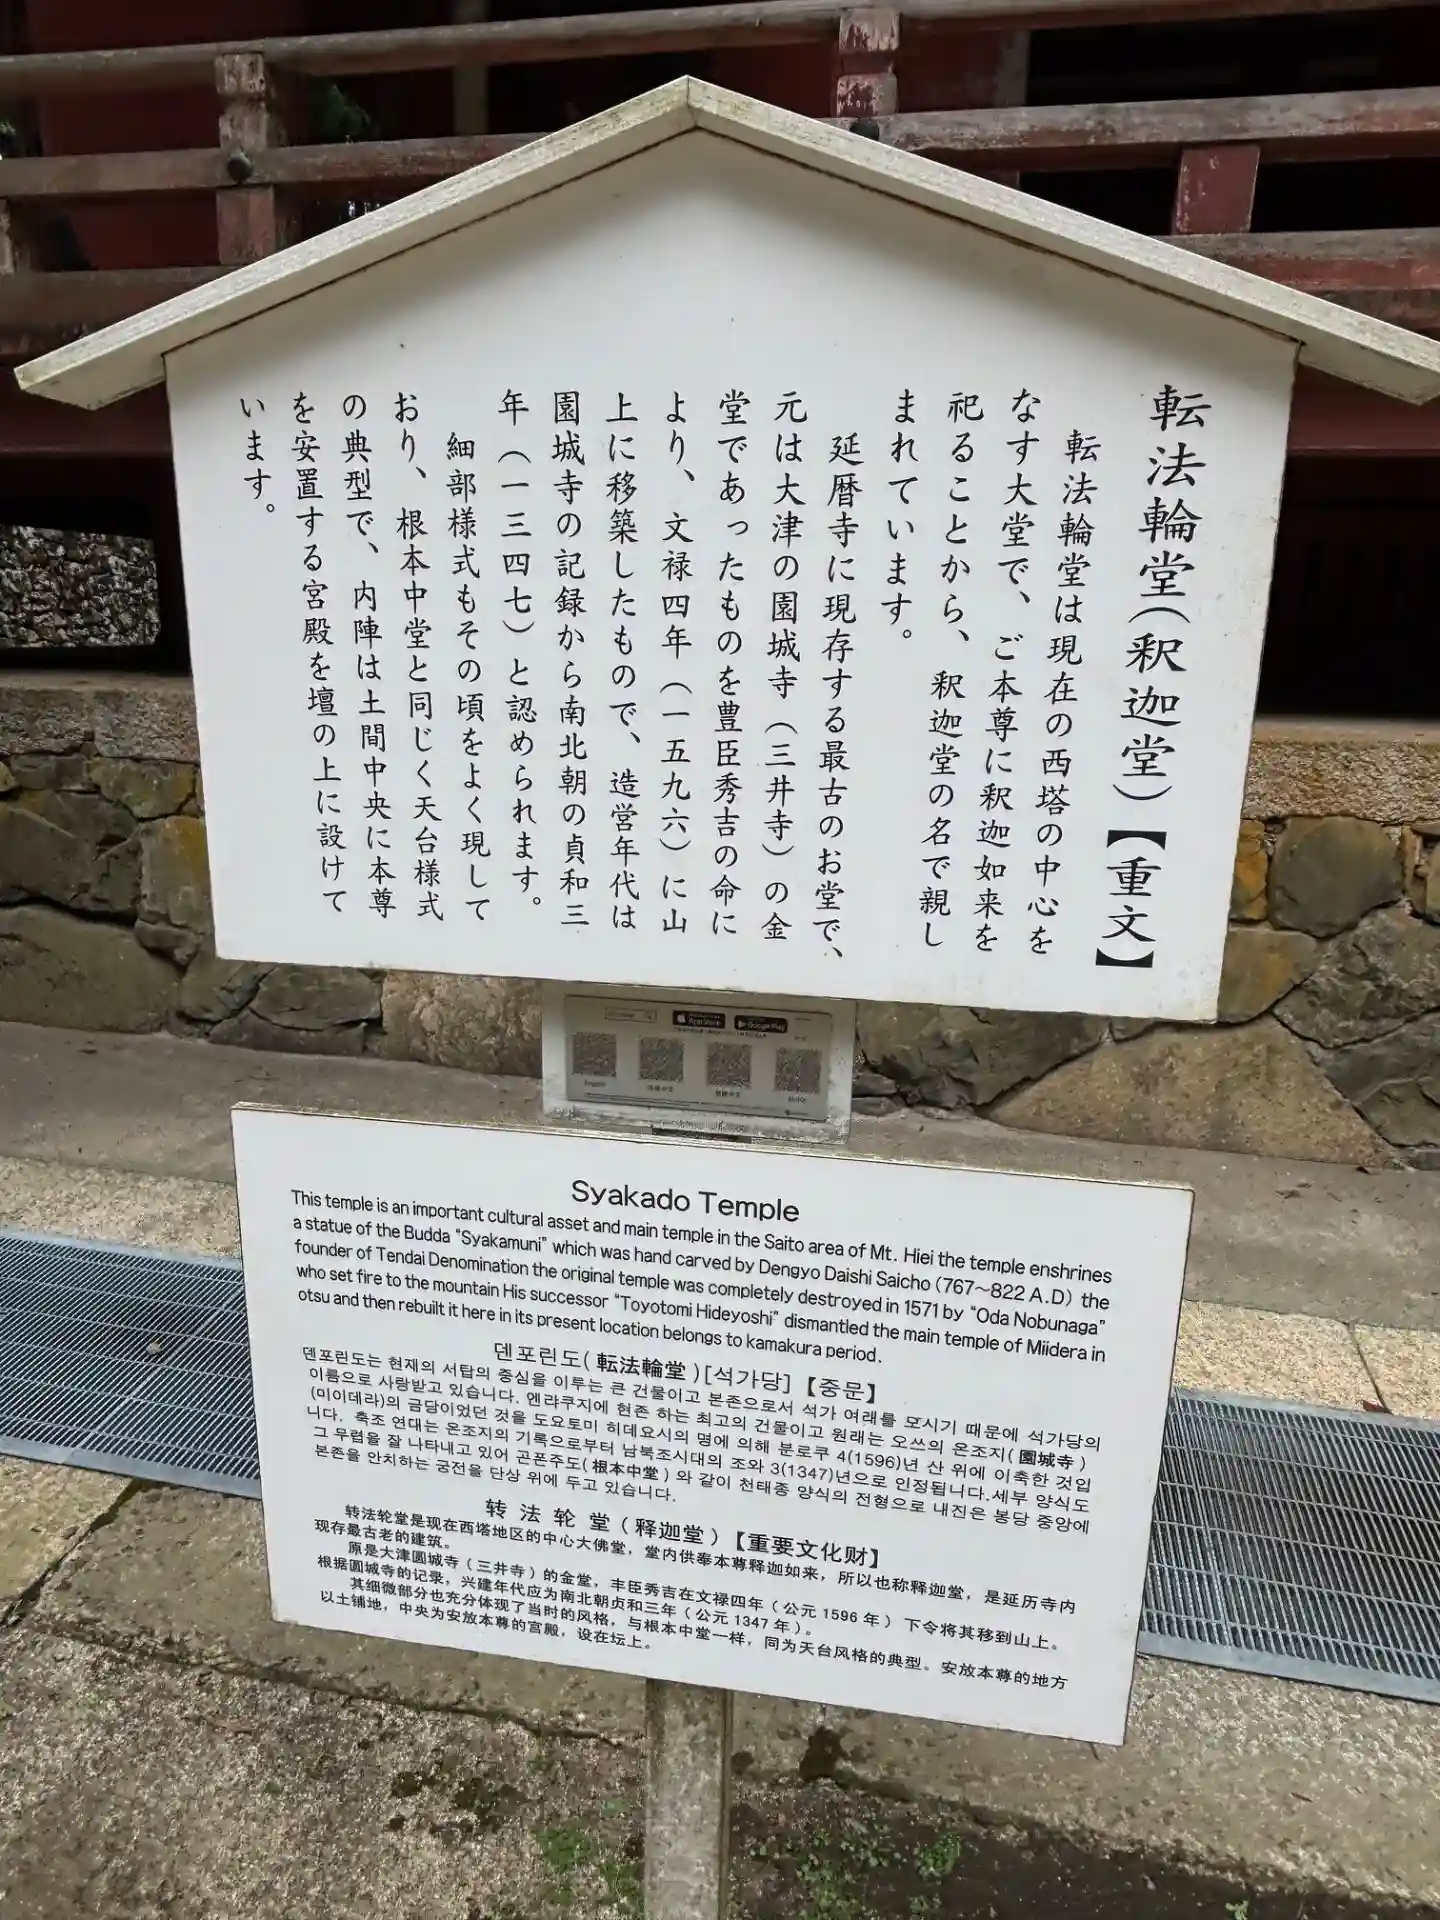 転法輪堂（釈迦堂）【重文】
転法輪堂は現在の西塔の中心を
なす大堂で、ご本尊に釈迦如来を
祀ることから、釈迦堂の名で親し
まれています。
延暦寺に現存する最古のお堂で、
元は大津の園城寺（三井寺）の金
堂であったものを豊臣秀吉の命に
より、文禄四年（一五九六）に山
上に移築したもので、造営年代は
園城寺の記録から南北朝の貞和三
年（一三四七）と認められます。
細部様式もその頃をよく現して
おり、根本中堂と同じく天台様式
の典型で、内陣は土間中央に本尊
を安置する宮殿を壇の上に設けて
います。
App Store Google Play
English
Syakado Temple
This temple is an important cultural asset and main temple in the Saito area of Mt. Hiei the temple enshrines
a statue of the Budda "Syakamuni" which was hand carved by Dengyo Daishi Saicho (767～822 A.D) the
founder of Tendai Denomination the original temple was completely destroyed in 1571 by "Oda Nobunaga"
who set fire to the mountain His successor "Toyotomi Hideyoshi" dismantled the main temple of Miidera in
otsu and then rebuilt it here in its present location belongs to kamakura period.
덴포린도(転法輪堂)[석가당]【중문】
덴포린도는 현재의 서탑의 중심을 이루는 큰 건물이고 본존으로서 석가 여래를 모시기 때문에 석가당의
이름으로 사랑받고 있습니다. 엔랴쿠지에 현존 하는 최고의 건물이고 원래는 오쓰의 온조지(園城寺)
(미이데라)의 금당이었던 것을 도요토미 히데요시의 명에 의해 분로쿠 4(1596)년 산 위에 이축한 것입
니다. 축조 연대는 온조지의 기록으로부터 남북조시대의 조와 3(1347)년으로 인정됩니다.세부 양식도
그 무렵을 잘 나타내고 있어 곤폰주도(根本中堂)와 같이 천태종 양식의 전형으로 내진은 봉당 중앙에
본존을 안치하는 궁전을 단상 위에 두고 있습니다.
转法轮堂（释迦堂）【重要文化财】
转法轮堂是现在西塔地区的中心大佛堂，堂内供奉本尊释迦如来，所以也称释迦堂，是延历寺内
现存最古老的建筑。
原是大津圆城寺（三井寺）的金堂，丰臣秀吉在文禄四年（公元 1596 年）下令将其移到山上。
根据圆城寺的记录，兴建年代应为南北朝贞和三年（公元 1347 年）。
其细微部分也充分体现了当时的风格，与根本中堂一样，同为天台风格的典型。安放本尊的地方
以土铺地，中央为安放本尊的宫殿，设在坛上。